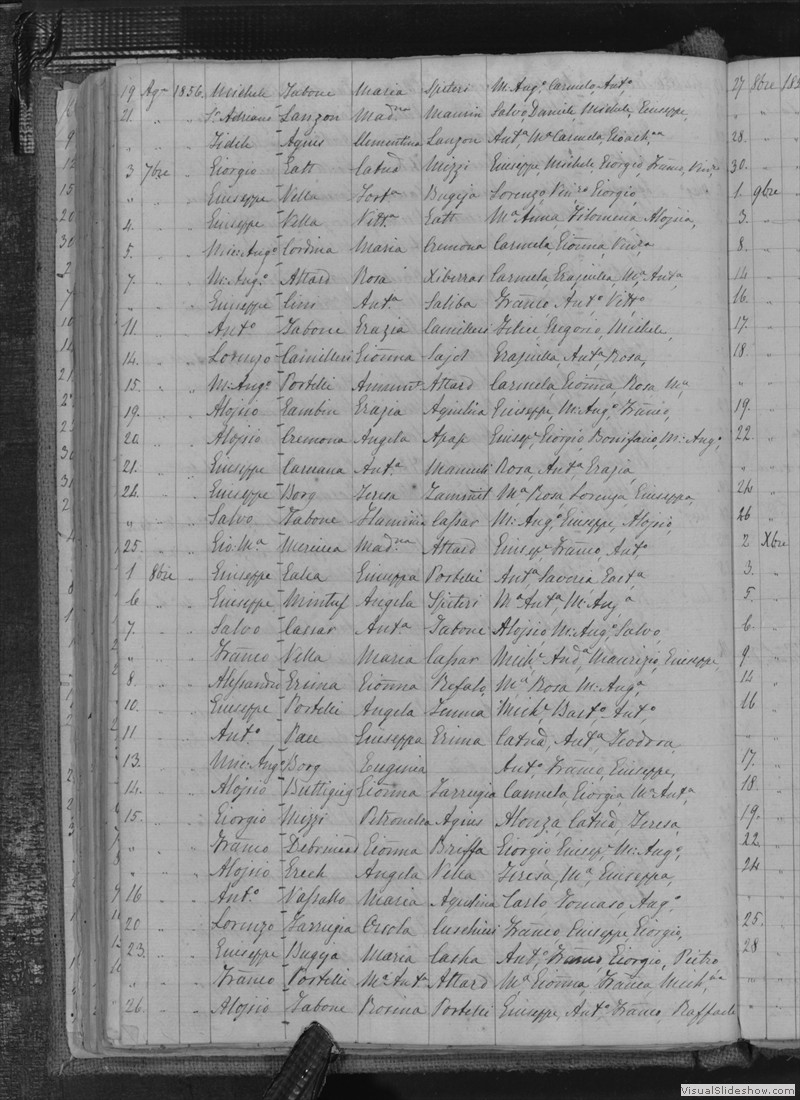 19 Ag- 1856. Michele Tabone Maria Spiteri M. Ang.o Carmelo Ant.o
21. " " Sr. Adriano Lanzon Mad.na Maurin Salvo, Daniele, Michele, Giuseppe,
" " " Fidele Agius Clementina Lanzon Ant.a M.a Carmela,
3 7bre " Giorgio Gatt Cat.na Mizzi Giuseppe, Michele, Giorgio, Franco, Vinzo
" " " Giuseppe Vella Fort.a Bugeja Lorenzo, Vin.zo Giorgio,
4. " " Giuseppe Vella Vitt.a Gatt M.a Anna, Filomena Aloisia,
5. " " Mic: Ang.o Cordina Maria Cremona Carmela, Gionna, Vinza
7. " " M. Ang.o Attard Rosa Xiberras Carmela, Graziulla, M.a Ant.a
" " " Giuseppe Ant.a Saliba Franco Ant.o Vitt.o
11. " " Ant.o Tabone Grazia Camilleri Felice, Gregorio, Michele,
14. " " Lorenzo Camilleri Gionna Grazulla, Ant.a Rosa,
15. " " M: Ang.o Portelli Annun.a Attard Carmela, Gionna, Rosa M.a
19. " " Aloisio Gambin Grazia Aquilina Giuseppe, M. Ang.o Franco,
20. " " Aloisio Cremona Angela Apap Giuse.e Giorgio, Bonifacio, M: Ang.o,
21. " " Giuseppe Caruana Ant.a Mamuli Rosa, Ant.a Grazia
24. " " Giuseppe Borg Teresa Zammit M.a Rosa Lorenza, Giuseppa,
" " " Salvo Tabone Flaminia Cassar M: Ang.o Giuseppe, Aloisio,
25. " " Gio: M.a Mercieca Mad.na Attard Giuse.e Franco, Ant.o
1 8bre " Giuseppe Galea Giuseppa Portelli Ant.a Saveria
6 " " Giuseppe Mintuf Angela Spiteri M.a Ant.a M: Ang.a
7. " " Salvo Cassar Ant.a Tabone Aloisio M: Ang.o Salvo
" " " Franco Vella Maria Cassar Mich.e And.a Maurizio, Giuseppe,
8. " " Alessandro Grima Gionna Refalo, M.a Rosa M: Ang.a
10. " " Giuseppe Portelli Angela Mich.e Bart.o Ant.o
11 " " Ant.o Pace Giuseppa Grima Cat.na, Ant.a Teodora,
13. " " Mic: Ang.o Borg Eugenia Ant.o Franco, Giuseppe,
14. " " Aloisio Buttigieg Gionna Farrugia Carmela, Giorgia, M.a Ant.a
15. " " Giorgio Mizzi Petronella Agius Cat.na, Teresa,
" " " Franco Debrincat Gionna Briffa Giorgio, Giuse.e M: Ang.o
" " " Aloisio Grech Angela Vella Teresa, M.a Giuseppa,
16 " " Ant.o Vassallo Maria Aquilina Carlo Tomaso, Aug.o
20 " " Lorenzo Farrugia Orsola Franco Giuseppe Giorgio,
23. " " Giuseppe Bugeja Maria Casha Ant.o Franco, Giorgio, Pietro
" " " Franco Portelli M.a Ant.a Attard M.a Gionna, Franca
26. " " Aloisio Tabone Rosina Portelli Giuseppe, Ant.o Franco, Raffaele
27 8bre 185
28.
30.
1. 9bre
3.
8.
14
16.
17.
18.
19.
22.
24
26
2 Xbre
3.
5.
6
9
14
16
17.
18.
19.
22
24
25.
28
VisualSlideshow.com